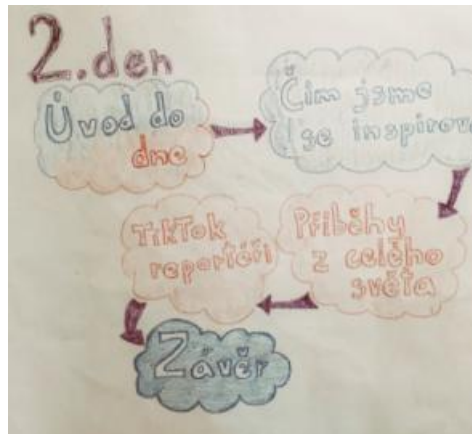 2.den
Úvod do
dne
Čím jsme
se inspirova
Příběhy
z celého
světa
TikTok
reportéři
Závěr